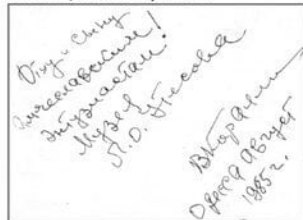 Отцу и Сыну
Амчеславским!
Энтузиастам!
Музея
Л. О. Утесова
ВКоралли
Одесса Август
1985 г.